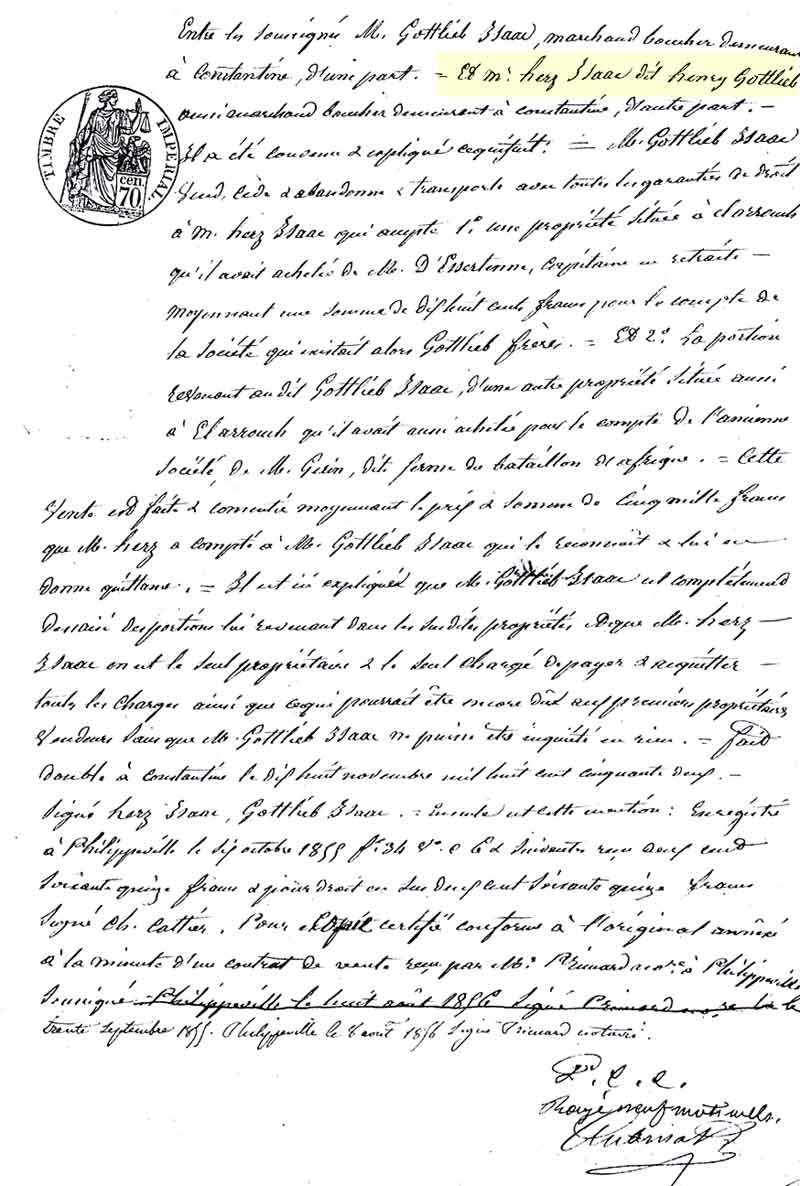 Entre les soussignés M. Gottlieb Isaac, marchand boucher demeurant
à Constantine, d'une part. = Et Mr. herz Isaac dit henry Gottlieb
aussi marchand boucher demeurant à Constantine, d'autre part. –
Il a été convenu & expliqué cequisuit: = M. Gottlieb Isaac
Vend, cède & abandonne & transporte avec toutes les garanties de droit
à M. herz Isaac qui accepte 1º une propriété située à Elarrouch
qu'il avait achetée de M. D'Essertenne, Capitaine en retraite –
moyennant une somme de dix huit cents francs pour le compte de
la société qui existait alors Gottlieb frères. = Et 2º. La portion
revenant au dit Gottlieb Isaac, d'une autre propriété située aussi
à Elarrouch qu'il avait aussi achetée pour le compte de l'ancienne
société, de M. Gerin, dite ferme du bataillon d'afrique. = Cette
Vente est faite & consentie moyennant le prix & somme de Cinq mille francs
que M. herz a compté à M. Gottlieb Isaac qui le reconnait & lui en
donne quittance. = Il est ici expliqué que M. Gottlieb Isaac est complètement
dessaisi des portions lui revenant dans les susdites propriétés & que M. herz –
Isaac en est le seul propriétaire & le seul chargé de payer & acquitter –
toutes les charges ainsi que cequi pourrait être encore dûx aux premiers propriétaires
Vendeurs sans que M. Gottlieb Isaac ne puisse être inquiété en rien. = fait
double à Constantine le dix huit novembre mil huit cent cinquante deux. –
Signé herz Isaac, Gottlieb Isaac. = Ensuite est cette mention: Enregistré
à Philippeville le dix octobre 1855 fº 34 Vº. C 6 & suivantes reçu deux cent
soixante quinze francs & pour droit en sus deux cent soixante quinze francs
Signé Ch. Cattier. Pour certifié conforme à l'original annexé
à la minute d'un contrat de vente reçu par Me. Primard nore. à Philippeville
soussigné Philippeville le huit août 1856 Signé Primard nore la le
trente septembre 1855. Philippeville le 8 août 1856 Signé Primard notaire.
Pr. C. C.
Rayé neuf mots nuls.
TIMBRE IMPERIAL
cen.
70